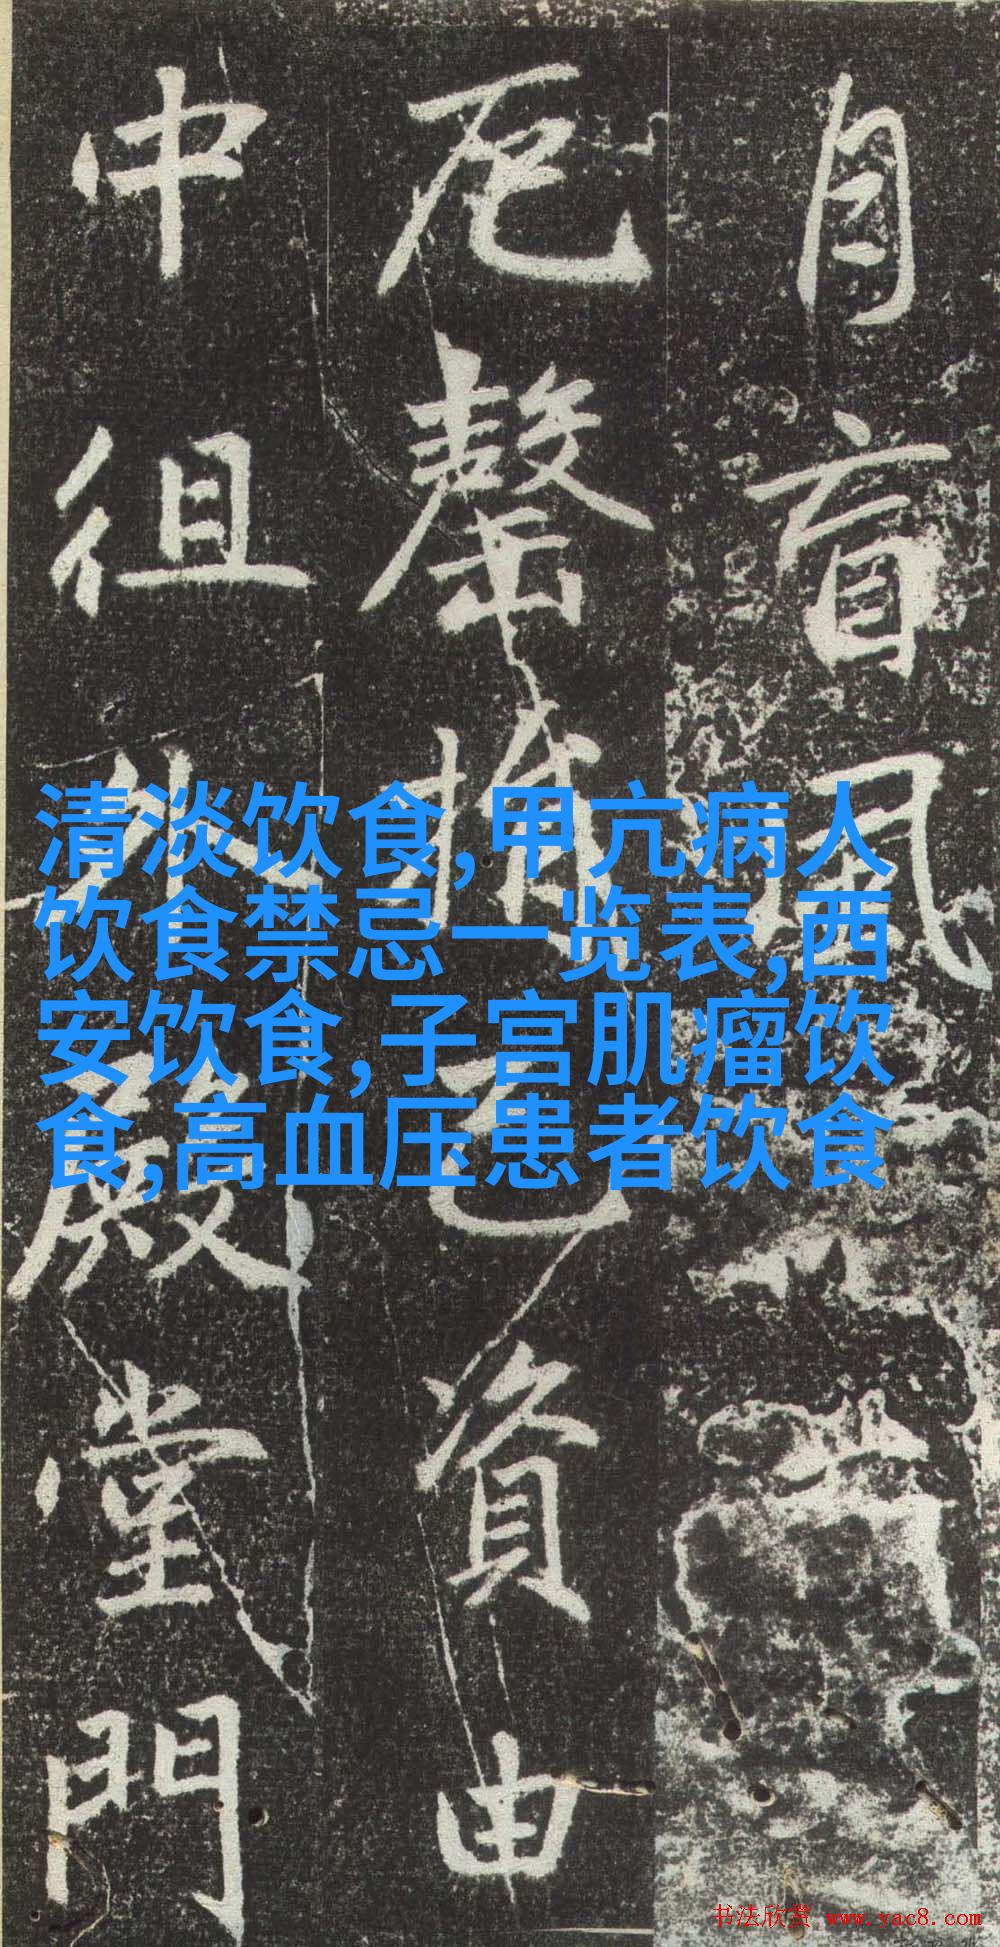 自盲風
卮罄捐己資由
中徂外殿堂門
清淡饮食,甲亢病人
饮食禁忌一览表,西
安饮食,子宫肌瘤饮
食,高血压患者饮食
书法欣赏 www.yac8.com